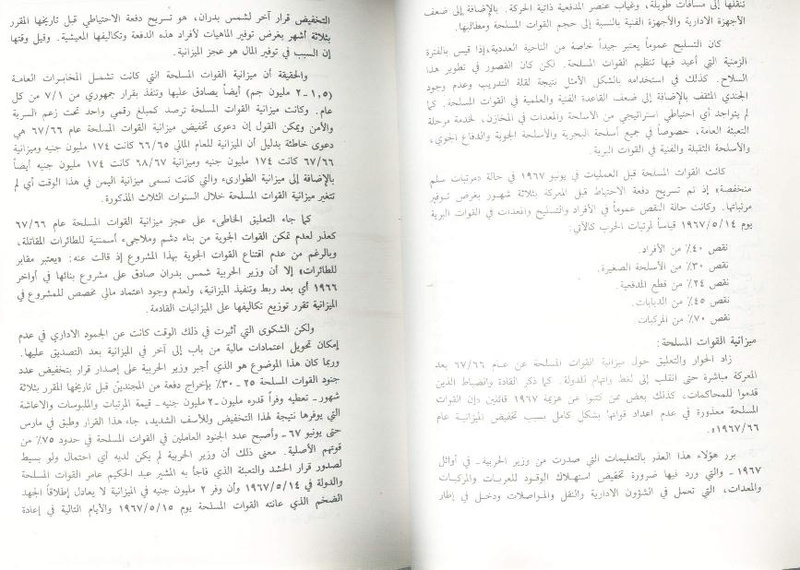 نقلها إلى مسافات طويلة، وغياب عنصر المدفعية ذاتية الحركة. بالإضافة إلى ضعف
الأجهزة الادارية والأجهزة الفنية بالنسبة إلى حجم القوات المسلحة ومطالبها.
كان التسليح عموماً يعتبر جيداً خاصة من الناحية العددية، إذا قيس بالفترة
الزمنية التي أعيد فيها تنظيم القوات المسلحة. لكن كان القصور في تطوير هذا
السلاح. كذلك في استخدامه بالشكل الأمثل نتيجة لقلة التدريب وعدم وجود
الجندي المثقف بالإضافة إلى ضعف القاعدة الفنية والعلمية في القوات المسلحة. كما
لم يتواجد أي احتياطي استراتيجي من الأسلحة والمعدات في المخازن، لخدمة مرحلة
التعبئة العامة، خصوصاً في جميع أسلحة البحرية والأسلحة الجوية والدفاع الجوي،
والأسلحة الثقيلة والفنية في القوات البرية.
كانت القوات المسلحة قبل العمليات في يونيو ١٩٦٧ في حالة «مرتبات سلم
منخفضة» إذ تم تسريح دفعة الاحتياط قبل المعركة بثلاثة شهور بغرض توفير
مرتباتها. وكانت حالة النقص عموماً في الأفراد والتسليح والمعدات في القوات البرية
يوم ١٩٦٧/٥/١٤ قياساً لمرتبات الحرب كالآتي:
نقص ٤٠٪ من الأفراد.
نقص ٣٠٪ من الأسلحة الصغيرة.
نقص ٢٤٪ من قطع المدفعية.
نقص ٤٥٪ من الدبابات.
نقص ٧٠٪ من المركبات.
ميزانية القوات المسلحة:
زاد الحوار والتعليق حول ميزانية القوات المسلحة عن عام ٦٧/٦٦ بعد
المعركة مباشرة حتى انقلب إلى لغط واتهام للدولة. كما ذكر القادة والضباط الذين
قدموا للمحاكمات، كذلك بعض من كتبوا عن هزيمة ١٩٦٧ قائلين «إن القوات
المسلحة معذورة في عدم اعداد قواتها بشكل كامل بسبب تخفيض الميزانية عام
١٩٦٧/٦٦».
برر هؤلاء هذا العذر بالتعليمات التي صدرت من وزير الحربية ـ في أوائل
١٩٦٧ ـ والتي ورد فيها ضرورة تخفيض استهلاك الوقود للعربات والمركبات
والمعدات، التي تعمل في الشؤون الادارية والنقل والمواصلات ودخل في إطار
التخفيض قرار آخر لشمس بدران، هو تسريح دفعة الاحتياطي قبل تاريخها المقرر
بثلاثة أشهر بغرض توفير الماهيات لأفراد هذه الدفعة وتكاليفها المعيشية. وقيل وقتها
إن السبب في توفير المال هو عجز الميزانية.
والحقيقة أن ميزانية القوات المسلحة التي كانت تشمل المخابرات العامة
(١,٥ ـ ٢ مليون جم) أيضاً يصادق عليها وتنفذ بقرار جمهوري من ٧/١ من كل
عام. وكانت ميزانية القوات المسلحة ترصد كمبلغ رقمي واحد تحت زعم السرية
والأمن ويمكن القول إن دعوى تخفيض ميزانية القوات المسلحة عام ٦٧/٦٦ هي
دعوى خاطئة بدليل أن الميزانية للعام المالي ٦٦/٦٥ كانت ١٧٤ مليون جنيه وميزانية
٦٧/٦٦ كانت ١٧٤ مليون جنيه وميزانية ٦٨/٦٧ كانت ١٧٤ مليون جنيه أيضاً
بالإضافة إلى ميزانية الطوارىء والتي كانت تسمى ميزانية اليمن في هذا الوقت أي لم
تتغير ميزانية القوات المسلحة خلال السنوات الثلاث المذكورة.
كما جاء التعليق الخاطىء على عجز ميزانية القوات المسلحة عام ٦٧/٦٦
كعذر لعدم تمكن القوات الجوية من بناء دشم وملاجىء أسمنتية للطائرات المقاتلة،
وبالرغم من عدم اقتناع القوات الجوية بهذا المشروع إذ قالت عنه: «يعتبر مقابر
للطائرات» إلا أن وزير الحربية شمس بدران صادق على مشروع بنائها في أواخر
١٩٦٦ أي بعد ربط وتنفيذ الميزانية، ولعدم وجود اعتماد مالي مخصص للمشروع في
الميزانية تقرر توزيع تكاليفها على الميزانيات القادمة.
ولكن الشكوى التي أثيرت في ذلك الوقت كانت عن الجمود الاداري في عدم
إمكان تحويل اعتمادات مالية من باب إلى آخر في الميزانية بعد التصديق عليها.
وربما كان هذا الموضوع هو الذي أجبر وزير الحربية على إصدار قرار بتخفيض عدد
جنود القوات المسلحة ٢٥ ـ ٣٠٪ بإخراج دفعة من المجندين قبل تاريخها المقرر بثلاثة
شهور ـ تعطيه وفراً قدره مليون ـ ٢ مليون جنيه ـ قيمة المرتبات والملبوسات والاعاشة
التي يوفرها نتيجة لهذا التخفيض وللأسف الشديد، جاء هذا القرار وطبق في مارس
حتى يونيو ٦٧ ـ وأصبح عدد الجنود العاملين في القوات المسلحة في حدود ٧٥٪ من
قوتهم الأصلية. معنى ذلك أن وزير الحربية لم يكن لديه أي احتمال ولو بسيط
لصدور قرار الحشد والتعبئة الذي فاجأ به المشير عبد الحكيم عامر القوات المسلحة
والدولة في ١٩٦٧/٥/١٤ وأن وفر ٢ مليون جنيه في الميزانية لا يعادل إطلاقاً الجهد
الضخم الذي عانته القوات المسلحة يوم ١٩٦٧/٥/١٥ والأيام التالية في إعادة